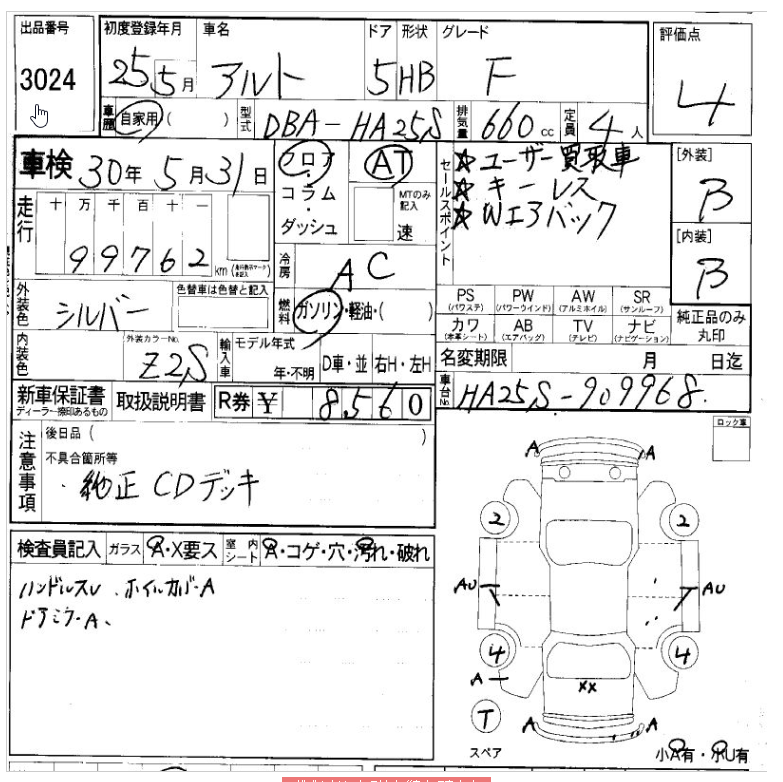 出品番号 初度登録年月 車名 ドア 形状 グレード 評価点
3024 25 5月 アルト 5 HB F 4
車歴 自家用 ( ) 型式 DBA-HA25S 排気量 660cc 定員 4人
車検 30年 5月 31日 フロア・コラム・ダッシュ AT MTのみ記入 速
セールスポイント ☆ユーザー買取車
☆キーレス
☆Wエアバック
[外装] B
[内装] B
走行 十 万 千 百 十 一
99762 km
冷房 AC
外装色 シルバー 色替車は色替と記入
燃料 ガソリン・軽油・( )
PS (パワステ) PW (パワーウインド) AW (アルミホイル) SR (サンルーフ)
カワ (本革シート) AB (エアバッグ) TV (テレビ) ナビ (ナビゲーション)
純正品のみ丸印
内装色 外装カラーNo. Z2S 輸入車 モデル年式 年・不明 D車・並 右H・左H
名変期限 月 日迄
新車保証書 ディーラー捺印あるもの 取扱説明書 R券 ¥ 8560
車台No. HA25S-909968
注意事項 後日品 ( )
不具合箇所等
・純正CDデッキ
ロック車
検査員記入 ガラス A・X要ス 室内シート A・コゲ・穴・汚れ・破れ
ハンドルスレ、ホイルカバーA
ドアミラーA、
A A
2 2
AU AU
4 4
A
XX
T A A
スペア
小A有・小U有